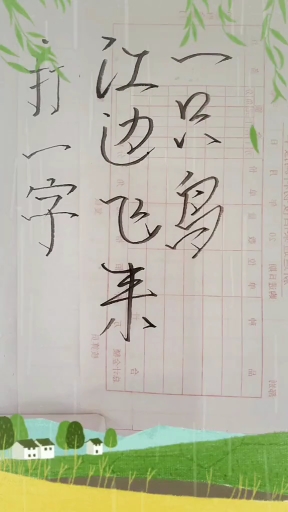 一只鸟
江边飞来
打一字